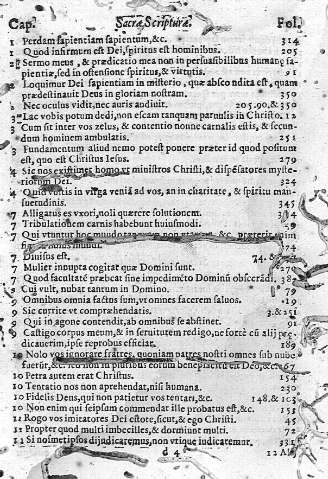 Cap. Sacræ Scripturæ. Fol.
1 Perdam sapientiam sapientum, &c. 314
1 Quod infirmum est Dei, spiritus est hominibus. 205
2 Sermo meus, & prædicatio mea non in persuasibilibus humanæ sa
pientiæ, sed in ostensione spiritus, & virtutis. 91
Loquimur Dei sapientiam in misterio, quæ abscondita est, quam
prædestinauit Deus in gloriam nostram. 350
2 Nec oculus vidit, nec auris audiuit. 205.90, & 350
Lac vobis potum dedi, non escam tanquam paruulis in Christo. 12
3 Cum sit inter vos zelus, & contentio nonne carnalis estis, & secun-
dum hominem ambulatis. 251
Fundamentum aliud nemo potest ponere præter id quod positum
est, quo est Christus Iesus. 279
4 Sic nos existimet homo vt ministros Christi, & dispẽsatores myste-
riorum Dei. 324
4 Quid vultis in virga veniã ad vos, an in charitate, & spiritu man
suetudinis. 345
7 Alligatus es vxori, noli quærere solutionem.
7 Tribulationem carnis habebunt huiusmodi. 59
7 Qui vtuntur hoc mundo
7 Diuisus est. 74. &
7 Mulier innupta cogitat quæ Domini sunt. 270
7 Quod facultatẽ præbeat sine impedimẽto Dominũ obsecrãdi. 38
Cui vult, nubat tantum in Domino. 79
9 Omnibus omnia factos sum, vt omnes facerem saluos. 19
9 Sic currite vt compræhendatis. 3. & 251
9 Qui in agone contendit, ab omnibus se abstinet. 91
9 Castigo corpus meum, & in seruitutem redigo, ne fortè cũ alij præ
dicauerim, ipse reprobus efficiar. 189
10 Nolo vos ignorare fratres, quoniam patres nostri omnes sub nube
fuerũt, &c. sed non in pluribus eorum beneplacitũ est Deo, &c. 167
10 Petra autem erat Christus. 154
10 Tentatio nos non aprehendat, nisi humana. 230
10 Fidelis Deus, qui non patietur vos tentari, &c. 148, & 103
10 Non enim qui seipsum commendat ille probatus est, &c. 351
11 Rogo vos imitatores Dei estote, sicut, & ego Christi. 45
11 Propter quod multi imbecilles, & dormiunt multi. 72
11 Si nosmetipsos dijudicaremus, non vtique iudicaremur. 331
d 4 12